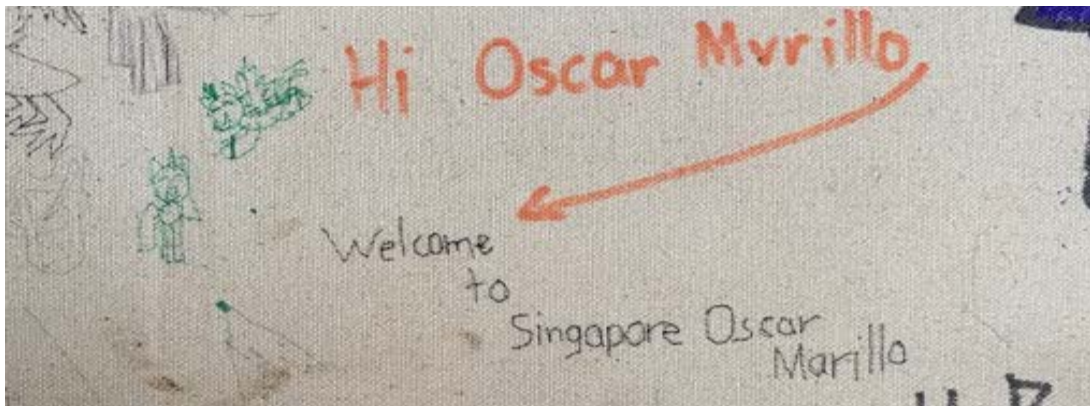 Hi Oscar Mvrillo
Welcome
to
Singapore Oscar
Marillo